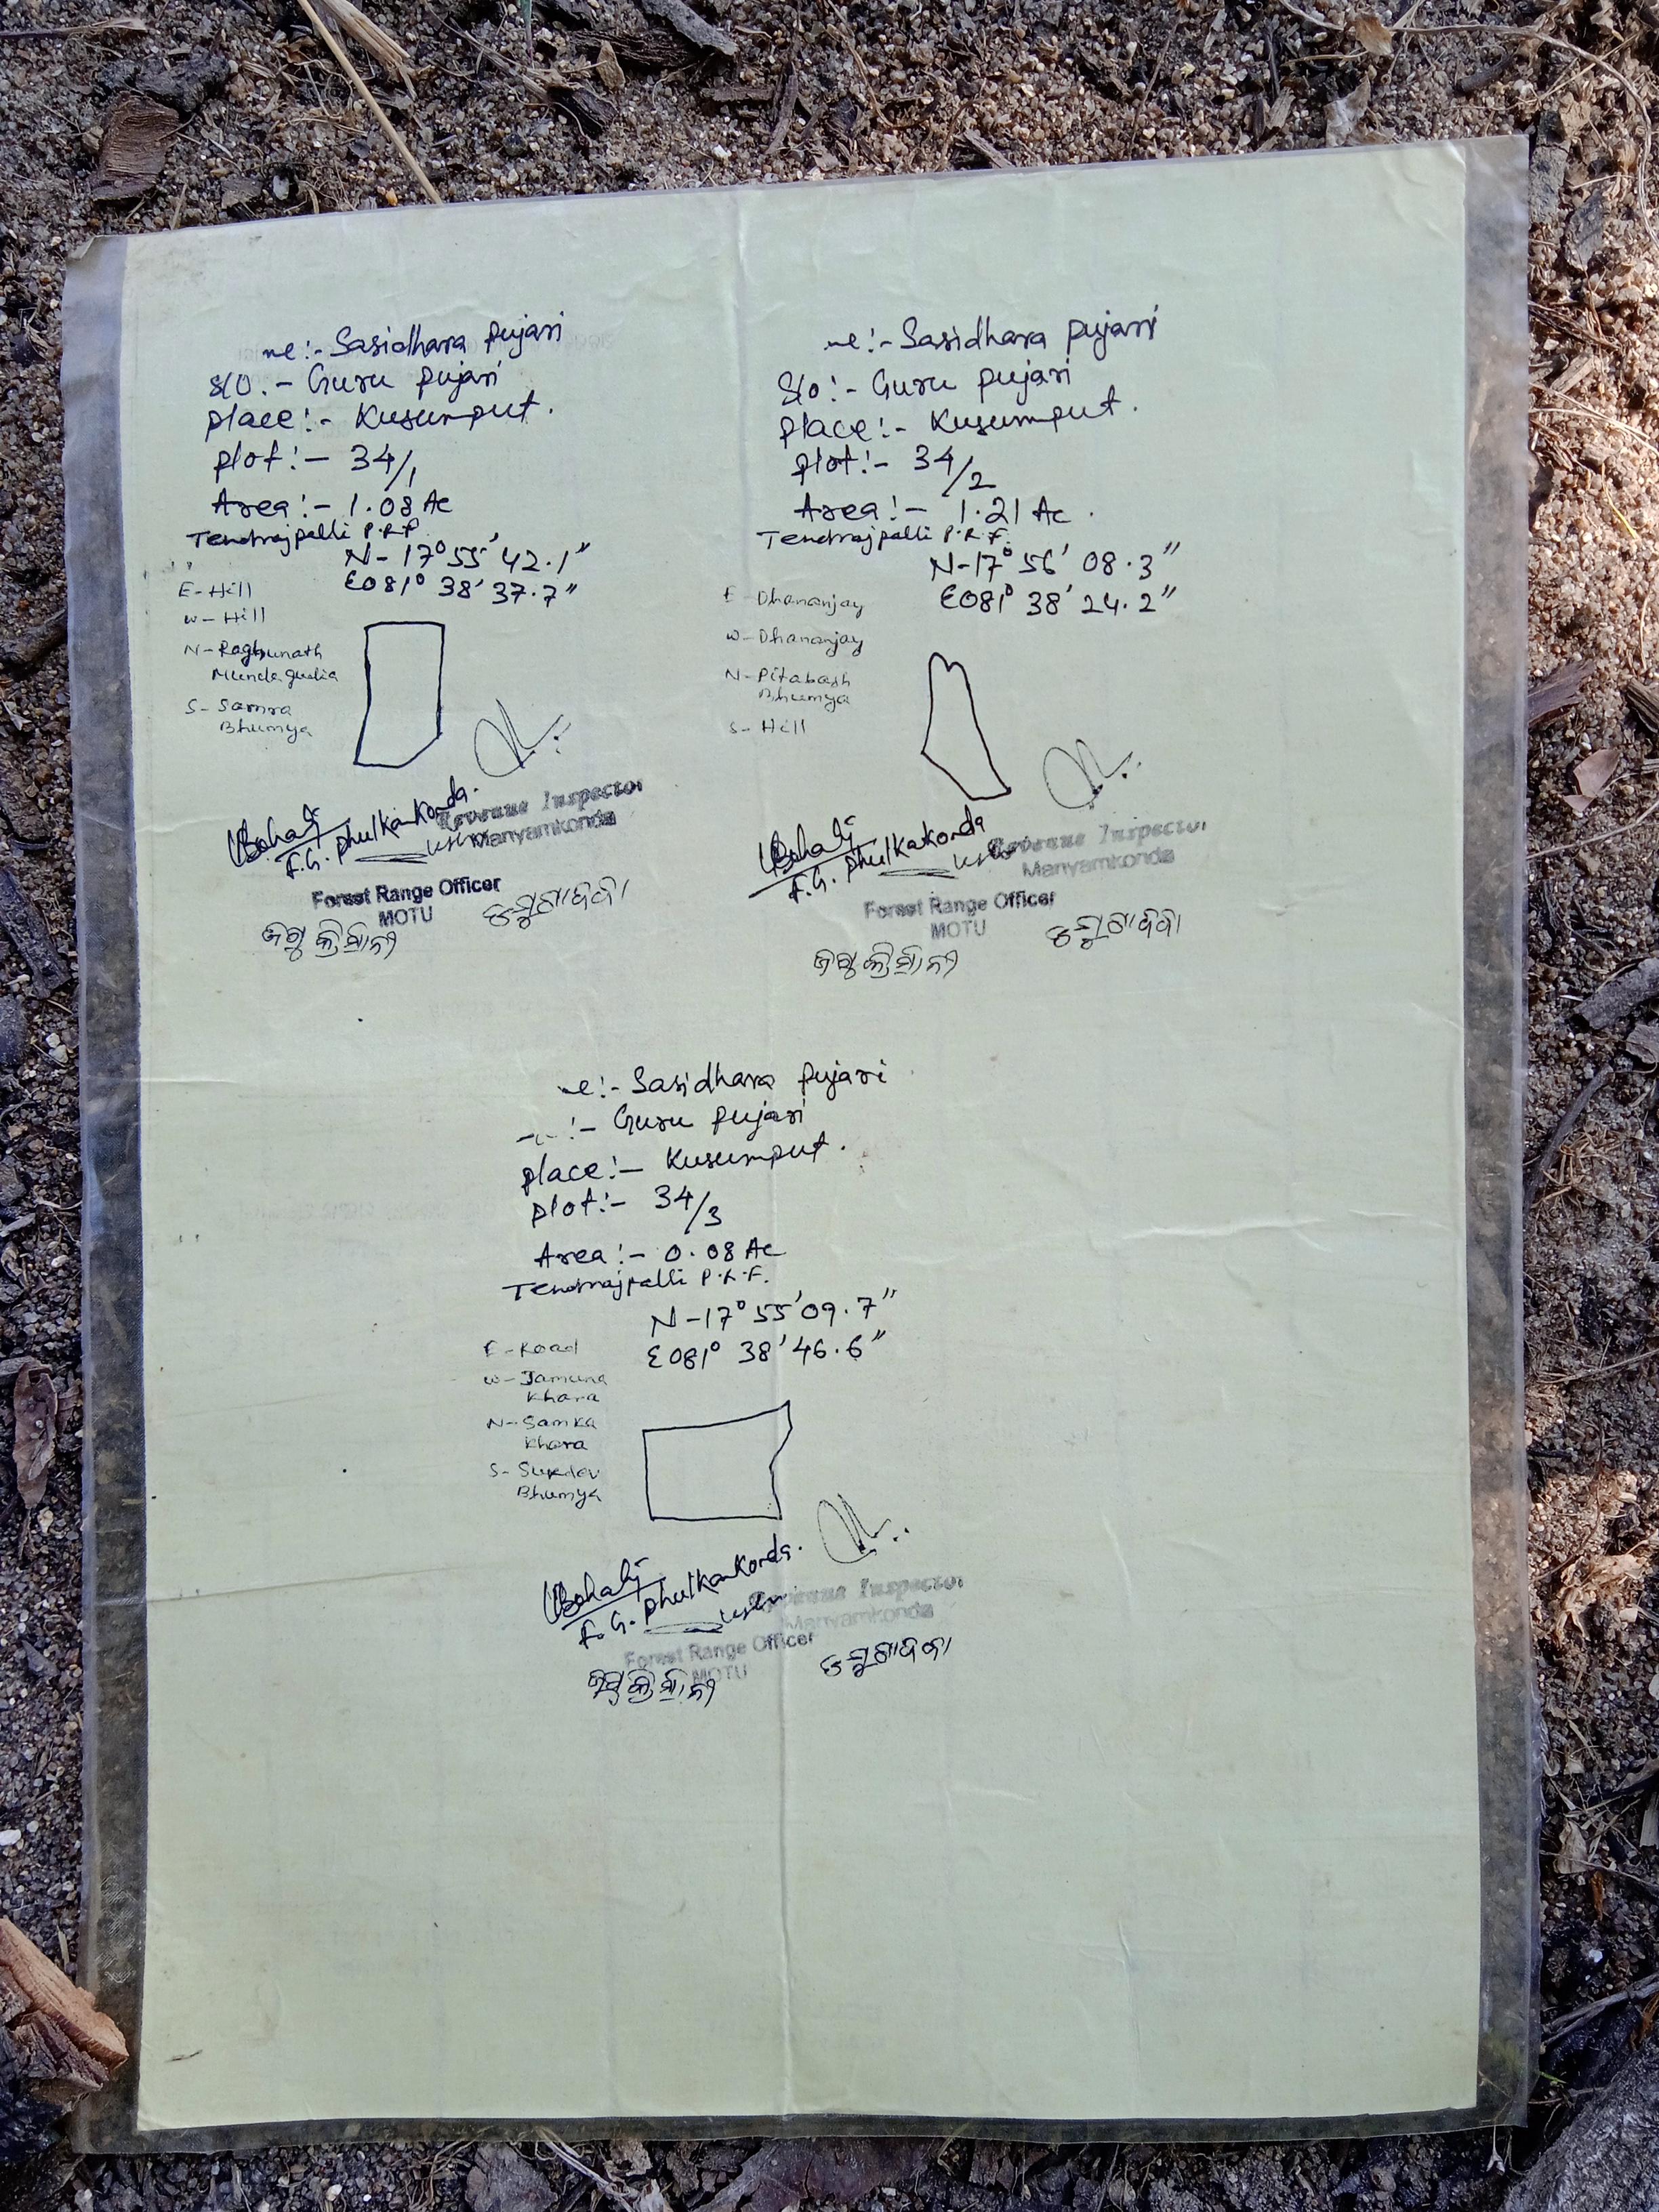 me:- Sasidhara pujari
S/O. - Guru pujari
place:- Kusumput.
plot:- 34/1
Area:- 1.08 Ac
Tendrajpalli P.R.F.
N-17°55'42.1"
E081° 38'37.7"
E-Hill
W-Hill
N-Raghunath
Mundagudia
S-Samra
Bhumya
F.G. Phulkankonda.
Revenue Inspector
Manyamkonda
Forest Range Officer
MOTU
me:- Sasidhara pujari
S/o:- Guru pujari
place:- Kusumput.
plot:- 34/2
Area:- 1.21 Ac.
Tendrajpalli P.R.F.
N-17°56' 08.3"
E081° 38' 24.2"
E-Dhananjay
W-Dhananjay
N-Pitabash
Bhumya
S-Hill
F.G. Phulkankonda
Revenue Inspector
Manyamkonda
Forest Range Officer
MOTU
e:- Sasidhara pujari
:- Guru pujari
place:- Kusumput.
plot:- 34/3
Area:- 0.08 Ac
Tendrajpalli P.R.F.
N-17°55'09.7"
E081° 38'46.6"
E-Road
W-Jamuna
Khara
N-Samka
Khara
S-Sukdev
Bhumya
F.G. Phulkankonda.
Revenue Inspector
Manyamkonda
Forest Range Officer
MOTU